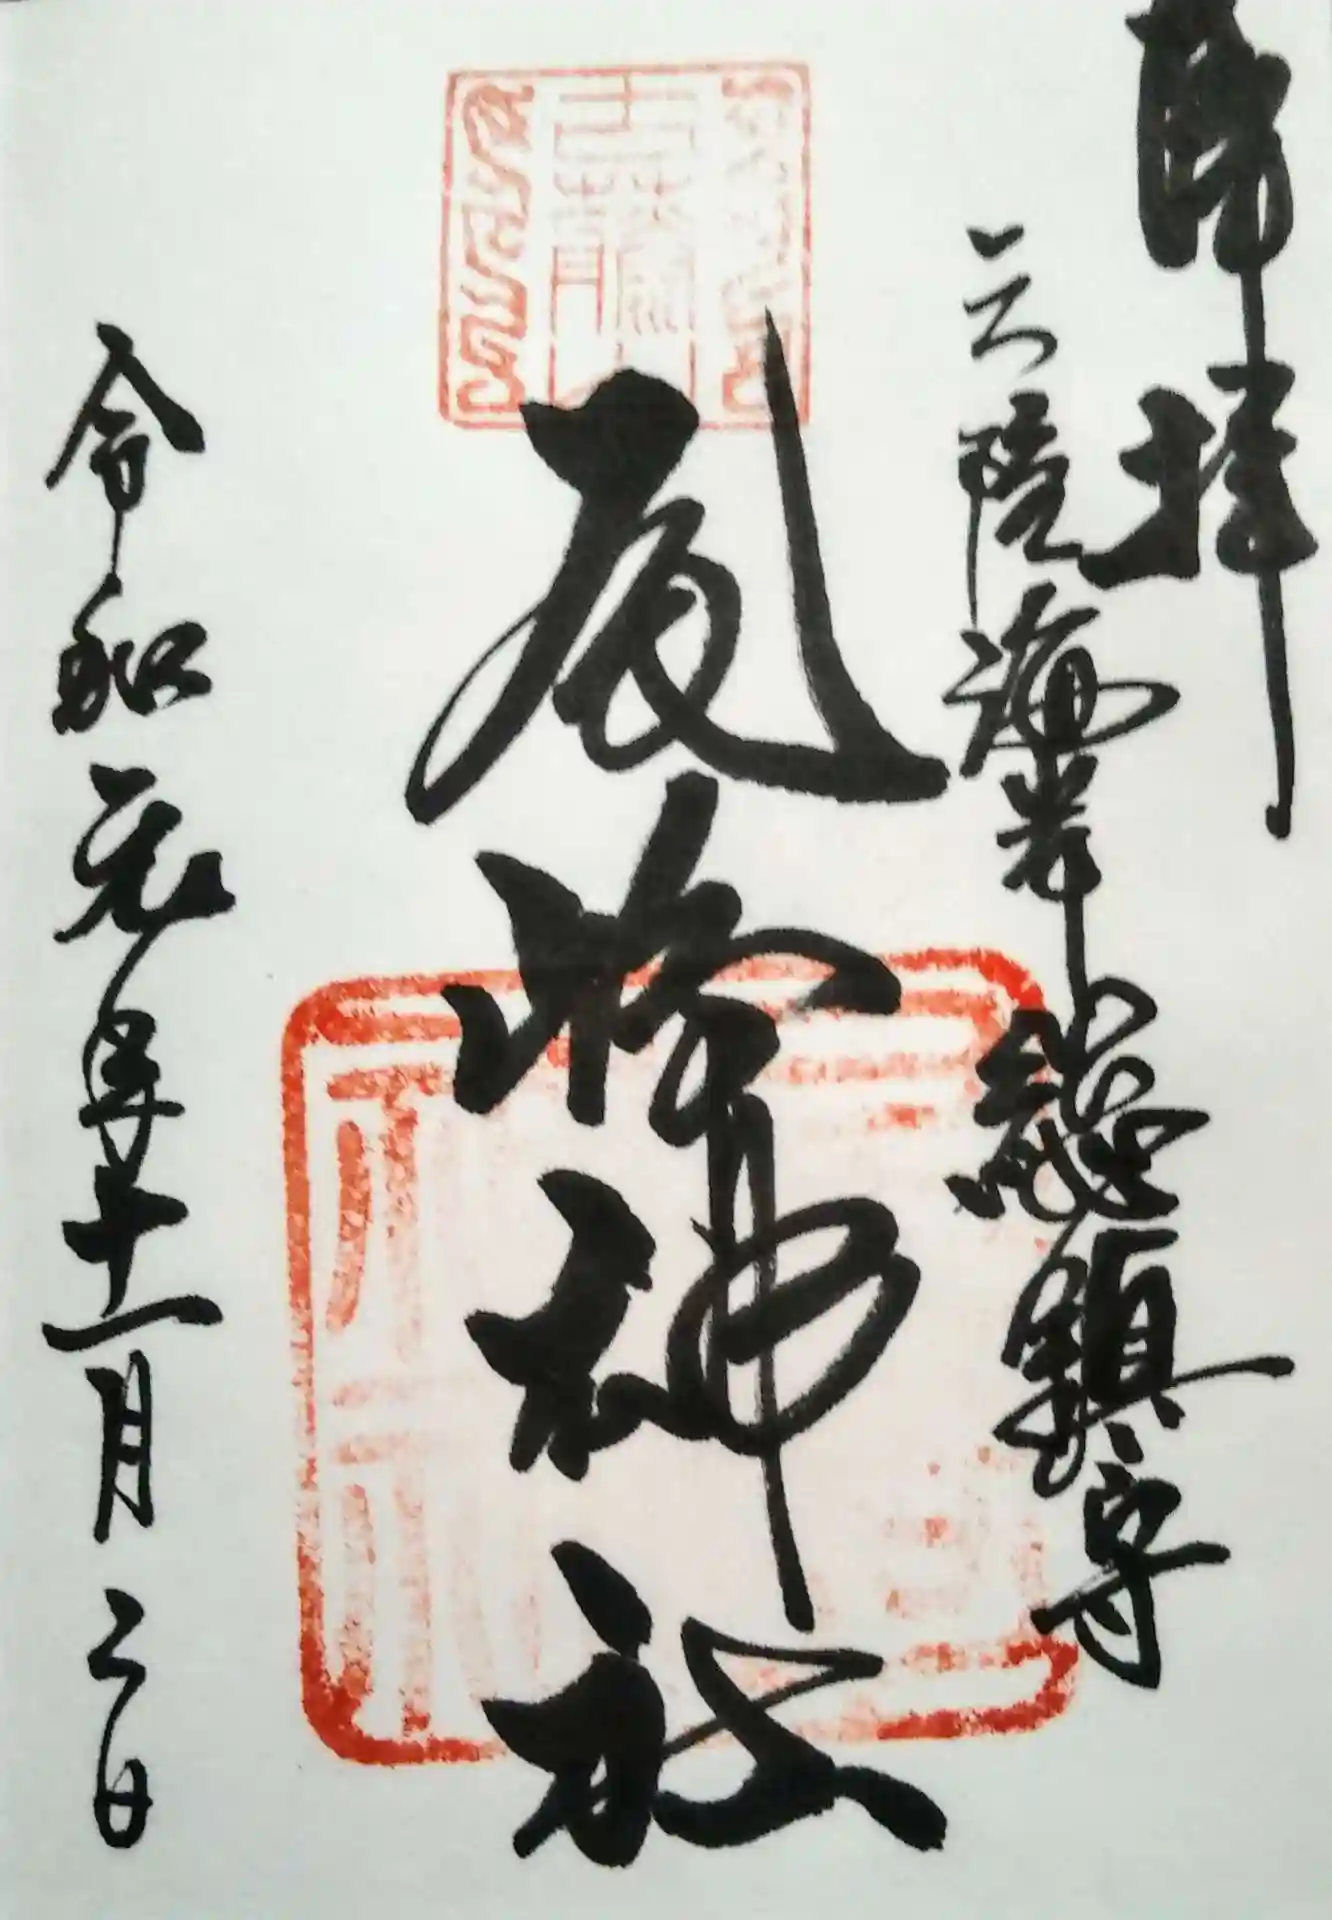 奉拝
三陸海岸總鎮守
尾崎神社
令和元年十一月二日